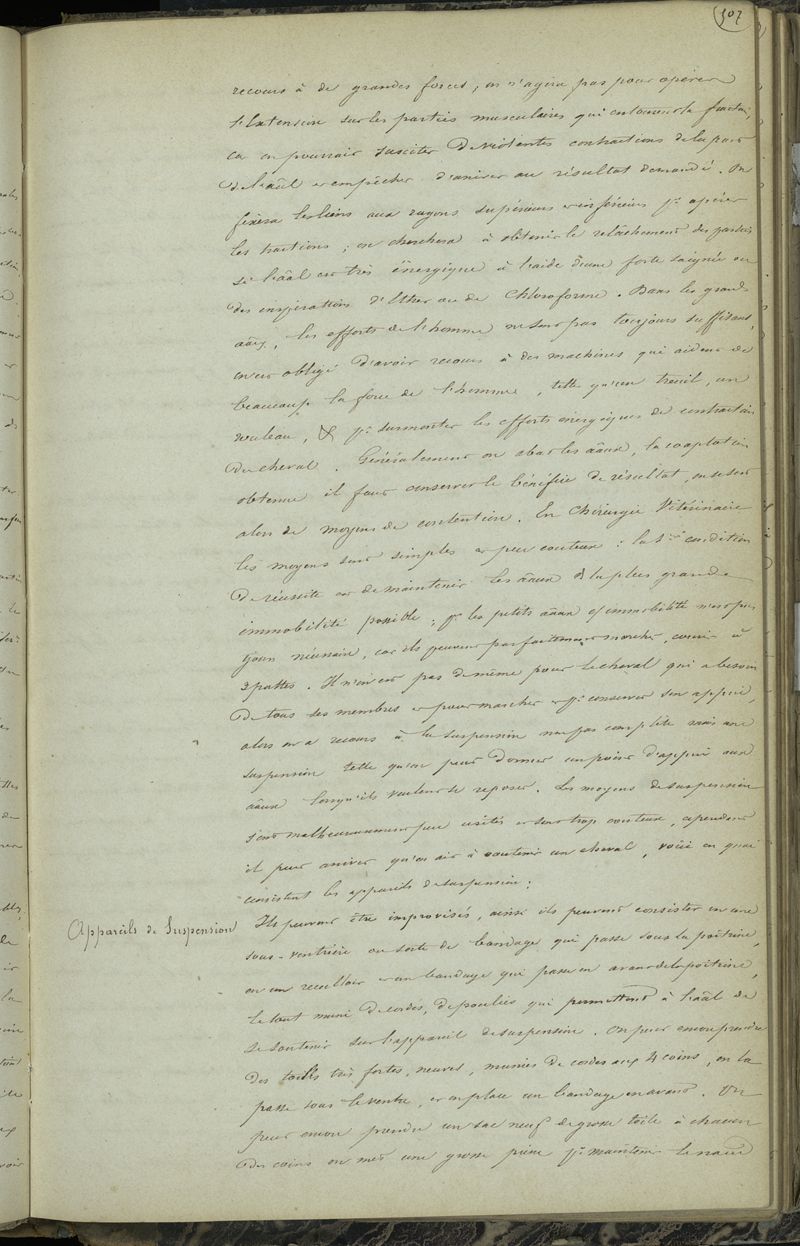 507
recours à de grandes forces, on n'agira pas pour opérer
l'extension sur les parties musculaires qui entourent la fracture,
ca on pourrait susciter de violentes contractions de la part
de l'aãl et empêcher d'arriver au résultat demandé. On
fixera les liens aux rayons supérieurs et inférieurs pr opérer
les tractions ; on cherchera à obtenir le relâchement des parties
si l'aãl est très énergique à l'aide d'une forte saignée ou
des inspirations d'Ether ou de Chloroforme. Dans les grands
aãx, les efforts de l'homme ne sont pas toujours suffisants,
on est obligé d'avoir recours à des machines qui aident de
beaucoup la force de l'homme, telle qu'un treuil, un
rouleau, & pr surmonter les efforts énergiques de contraction
du cheval. Généralement on abat les aãux, la coaptation
obtenue il faut conserver le bénéfice de résultat, on se sert
alors de moyens de contention. En Chirurgie Vétérinaire
les moyens sont simples et peu couteux : la 1ère condition
de réussite est de maintenir les aãux ds la plus grande
immobilité possible ; pr les petits aãux cet immobilité n'est pas
nécessaire, car ils peuvent parfaitement marcher, courir à
3 pattes. Il n'en est pas de même pour le cheval qui a besoin
de tous ses membres et pour marcher et pr conserver son appui,
alors on a recours à la suspension non pas complète mais une
suspension telle qu'on peut donner un point d'appui aux
aãux lorsqu'ils veulent se reposer. Les moyens de suspension
sont malheureusement peu usités et sont trop couteux, cependant
il peut arriver qu'on ait à soutenir un cheval, voici en quoi
consistent les appareils de suspension :
Appareils de Suspension
Ils peuvent être improvisés, ainsi ils peuvent consister en une
sous-ventrière ou sorte de bandage qui passe sous la poitrine,
en un reculoir et un bandage qui passe en avant de la poitrine,
le tout muni de cordes, de poulies qui permettent à l'aãl de
se soutenir sur l'appareil de suspension. On peut encore prendre
des toiles très fortes, neuves, munies de cordes aux 4 coins, on la
passe sous le ventre, et on place un bandage en avant. On
peut encore prendre un sac neuf de grosse toile à chacun
des coins on met une grosse pierre pr maintenir le nœud